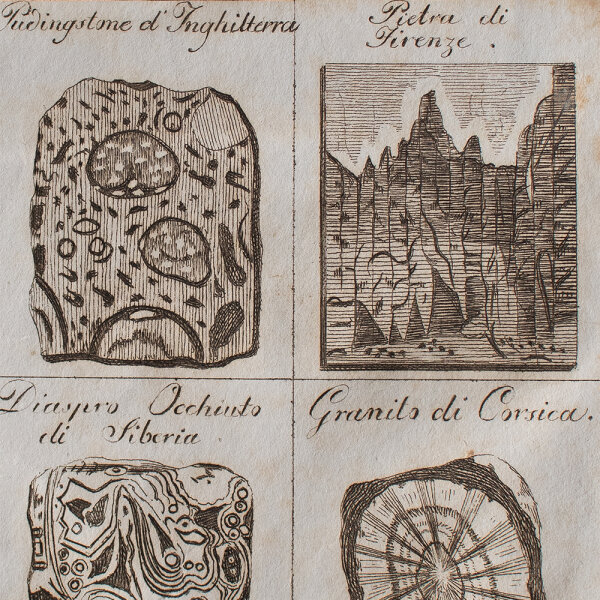 Pudingstone d'Inghilterra
Pietra di
Firenze.
Diaspro Occhiuto
di Siberia
Granito di Corsica.